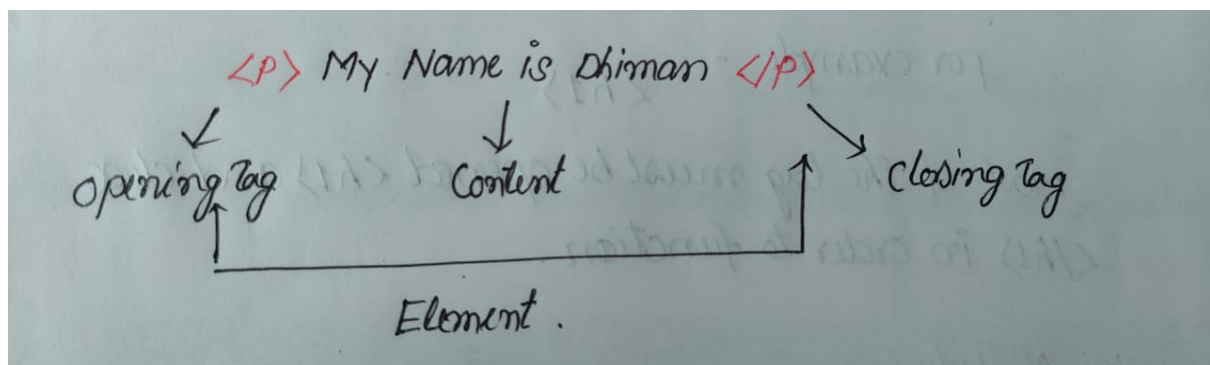 <p> My Name is Dhiman </p>
Opening Tag Content Closing Tag
Element .